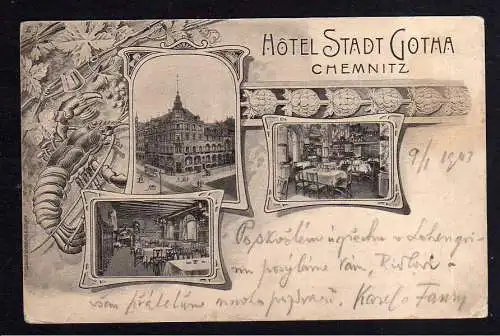 HÔTEL STADT GOTHA
CHEMNITZ
9/1 1903
Po skvělém úspěchu v Lohengri-
nu posíláme Vám,
všem přátelům mnoho pozdravů. Karel a Fanny